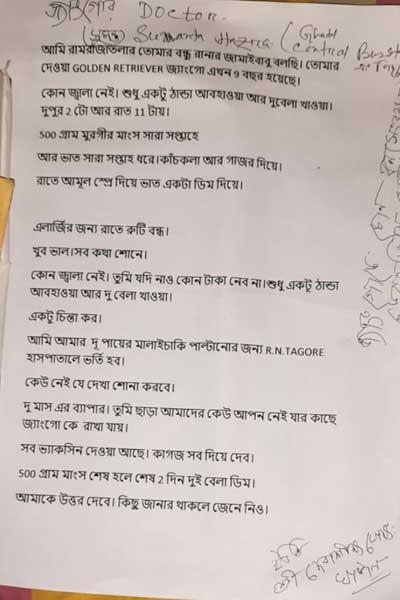 জ্যাংগোর DOCTOR.
(সুমন্ত) Sumanta Hazra. (Ghola Central Bus st
আমি রামরাজাতলার তোমার বন্ধু রানার জামাইবাবু বলছি। তোমার
দেওয়া GOLDEN RETRIEVER জ্যাংগো এখন 9 বছর হয়েছে।
কোন জ্বালা নেই। শুধু একটু ঠান্ডা আবহাওয়া আর দুবেলা খাওয়া।
দুপুর 2 টো আর রাত 11 টায়।
500 গ্রাম মুরগীর মাংস সারা সপ্তাহে
আর ভাত সারা সপ্তাহ ধরে।কাঁচকলা আর গাজর দিয়ে।
রাতে আমূল স্প্রে দিয়ে ভাত একটা ডিম দিয়ে।
এলার্জির জন্য রাতে রুটি বন্ধ।
খুব ভাল।সব কথা শোনে।
কোন জ্বালা নেই। তুমি যদি নাও কোন টাকা নেব না।শুধু একটু ঠান্ডা
আবহাওয়া আর দু বেলা খাওয়া।
একটু চিন্তা কর।
আমি আমার দু পায়ের মালাইচাকি পাল্টানোর জন্য R.N.TAGORE
হাসপাতালে ভর্তি হব।
কেউ নেই যে দেখা শোনা করবে।
দু মাস এর ব্যাপার। তুমি ছাড়া আমাদের কেউ আপন নেই যার কাছে
জ্যাংগো কে রাখা যায়।
সব ভ্যাকসিন দেওয়া আছে। কাগজ সব দিয়ে দেব।
500 গ্রাম মাংস শেষ হলে শেষ 2 দিন দুই বেলা ডিম।
আমাকে উত্তর দেবে। কিছু জানার থাকলে জেনে নিও।
ইতি
শ্রী দেবাশীষ